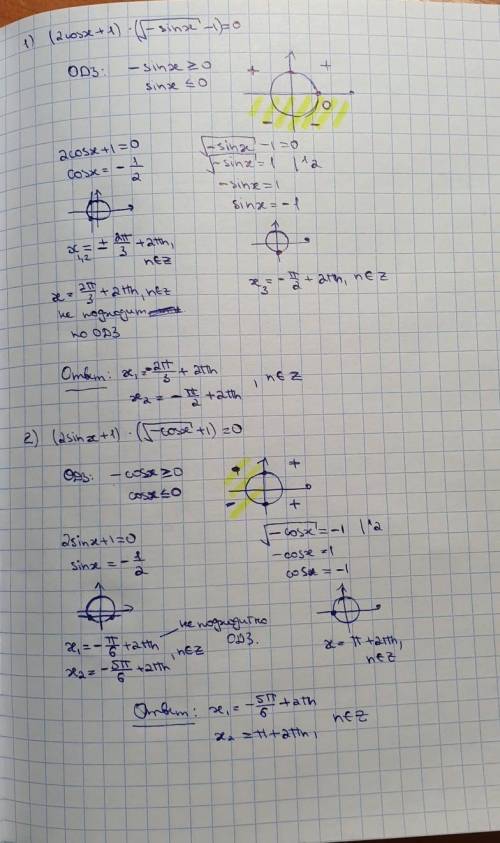 1) (2cosx+1)·(√-sinx -1)=0
ОДЗ: -sinx ≥ 0
sinx ≤ 0
+ +
0
- -
2cosx+1=0
cosx= -1/2
x₁,₂= ± 2π/3 +2πn,
n∈Z
x= 2π/3 +2πn, n∈Z
не подходит
по ОДЗ
√-sinx -1=0
√-sinx =1 |^2
-sinx=1
sinx=-1
x₃=-π/2 +2πn, n∈Z
Ответ: x₁=-2π/3 +2πn
x₂=-π/2 +2πn
, n∈Z
2) (2sinx+1)·(√-cosx +1)=0
ОДЗ: -cosx≥0
cosx≤0
+ +
- +
2sinx+1=0
sinx=-1/2
x₁=-π/6 +2πn
x₂=-5π/6 +2πn
, n∈Z
не подходит по
ОДЗ.
√-cosx =-1 |^2
-cosx=1
cosx=-1
x=π+2πn,
n∈Z
Ответ: x₁=-5π/6 +2πn
x₂=π+2πn,
n∈Z